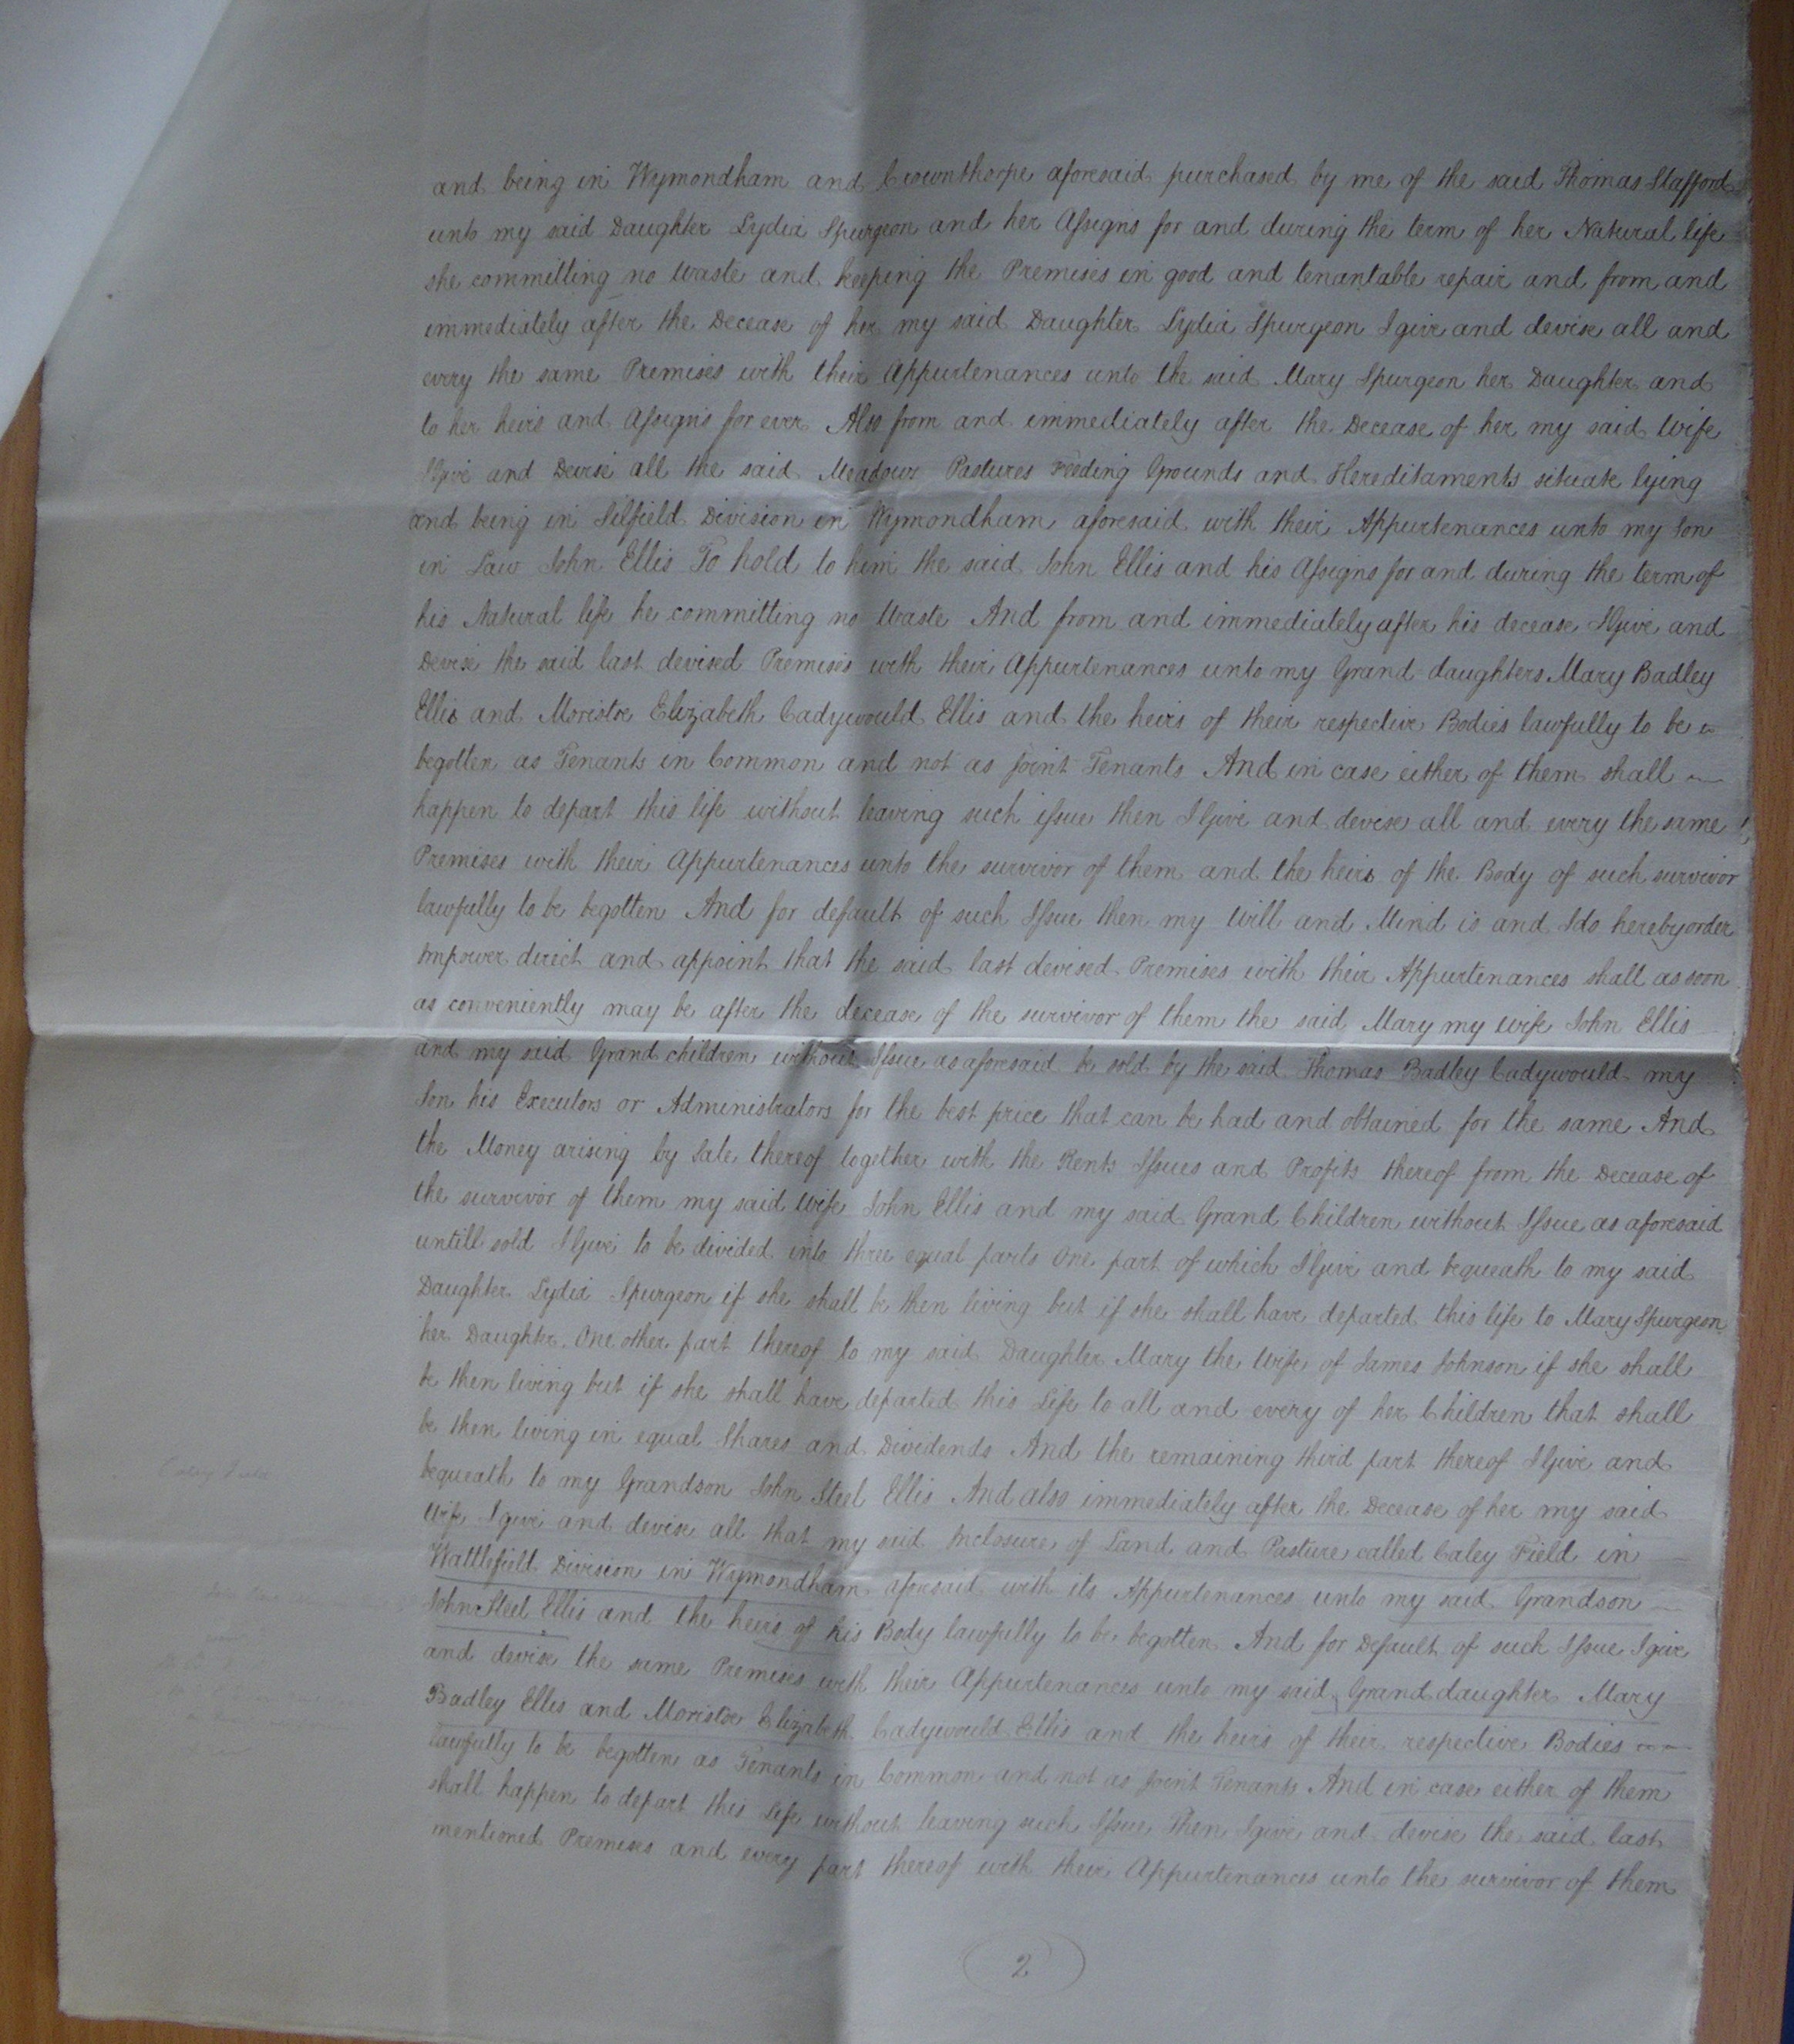 and being in Wymondham and Crownthorpe aforesaid purchased by me of the said Thomas Stafford
unto my said Daughter Lydia Spurgeon and her Assigns for and during the term of her Natural life
she committing no Waste and keeping the Premises in good and tenantable repair and from and
immediately after the Decease of her my said Daughter Lydia Spurgeon I give and devise all and
every the same Premises with their Appurtenances unto the said Mary Spurgeon her Daughter and
to her heirs and Assigns for ever Also from and immediately after the Decease of her my said Wife
I Give and Devise all the said Meadows Pastures Feeding Grounds and Hereditaments situate lying
and being in Silfield Division in Wymondham aforesaid with their Appurtenances unto my Son
in Law John Ellis To hold to him the said John Ellis and his Assigns for and during the term of
his Natural life he committing no Waste And from and immediately after his decease I Give and
Devise the said last devised Premises with their Appurtenances unto my Grand daughters Mary Badley
Ellis and Moristoe Elizabeth Cadywould Ellis and the heirs of their respective Bodies lawfully to be
begotten as Tenants in Common and not as Joint Tenants And in case either of them shall
happen to depart this life without leaving such issue then I Give and devise all and every the same
Premises with their Appurtenances unto the survivor of them and the heirs of the Body of such survivor
lawfully to be begotten And for default of such Issue then my Will and Mind is and I do hereby order
Impower direct and appoint that the said last devised Premises with their Appurtenances shall as soon
as conveniently may be after the decease of the survivor of them the said Mary my wife John Ellis
and my said Grand children without Issue as aforesaid be sold by the said Thomas Badley Cadywould my
Son his Executors or Administrators for the best price that can be had and obtained for the same And
the Money arising by Sale thereof together with the Rents Issues and Profits thereof from the Decease of
the survivor of them my said Wife John Ellis and my said Grand Children without Issue as aforesaid
untill sold I Give to be divided into three equal parts One part of which I Give and bequeath to my said
Daughter Lydia Spurgeon if she shall be then living but if she shall have departed this life to Mary Spurgeon
her Daughter One other part thereof to my said Daughter Mary the Wife of James Johnson if she shall
be then living but if she shall have departed this Life to all and every of her Children that shall
be then living in equal Shares and Dividends And the remaining third part thereof I Give and
bequeath to my Grandson John Steel Ellis And also immediately after the Decease of her my said
Wife I give and devise all that my said Inclosure of Land and Pasture called Caley Field in
Wattlefield Division in Wymondham aforesaid with its Appurtenances unto my said Grandson
John Steel Ellis and the heirs of his Body lawfully to be begotten And for Default of such Issue I give
and devise the same Premises with their Appurtenances unto my said Grand daughter Mary
Badley Ellis and Moristoe Elizabeth Cadywould Ellis and the heirs of their respective Bodies
lawfully to be begotten as Tenants in Common and not as Joint Tenants And in case either of them
shall happen to depart this Life without leaving such Issue Then I give and devise the said last
mentioned Premises and every part thereof with their Appurtenances unto the survivor of them
Caley Field
2